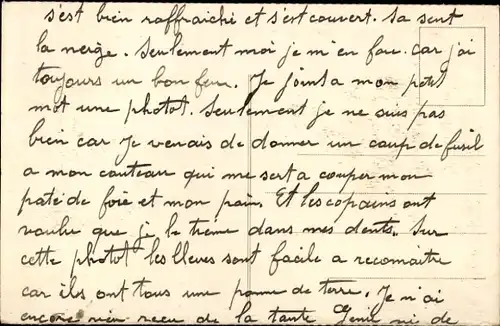 s'est bien raffraichi et s'est couvert. Sa sent
la neige. Seulement moi je m'en fou. Car j'ai
toujours un bon feu. Je joint a mon petit
mot une photot. Seulement je ne suis pas
bien car je venais de donner un coup de fusil
a mon couteau qui me sert a couper mon
paté de foie et mon pain. Et les copains ont
voulu que je le tienne dans mes dents. Sur
cette photot les lleves sont facile a reconnaitre
car ils ont tous une pomme de terre. Je n'ai
encore rien recu de la tante ni de